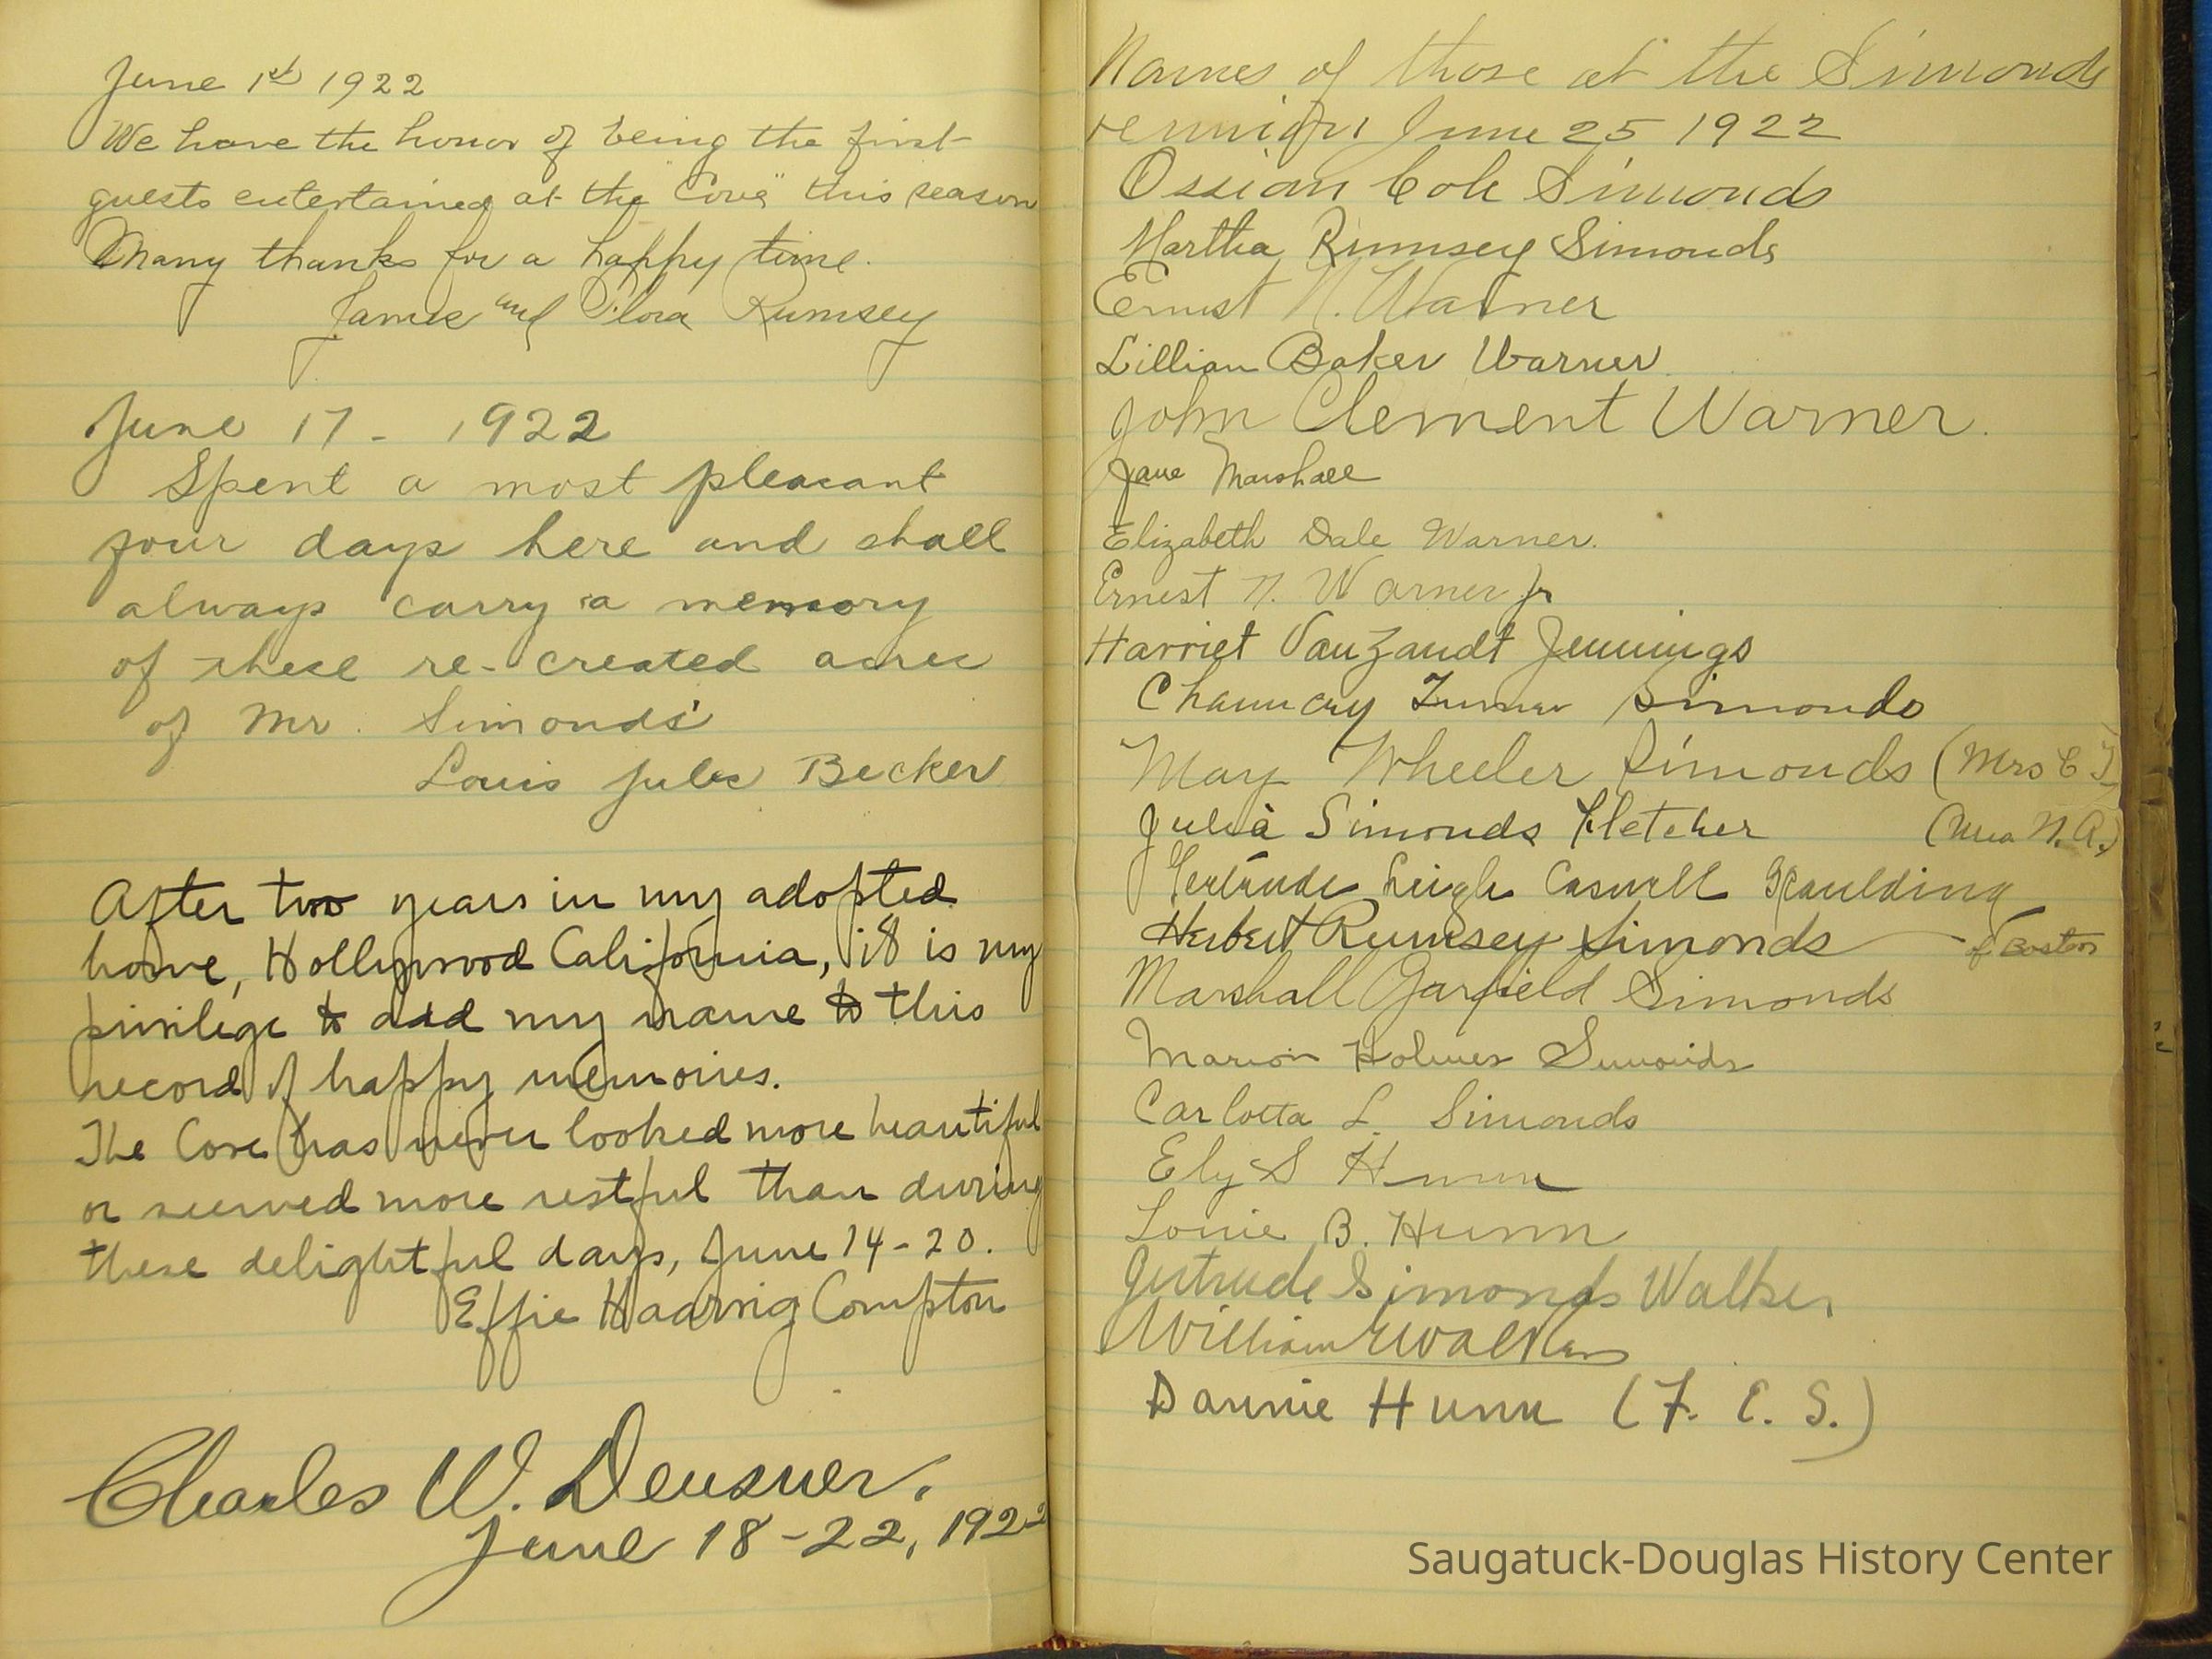 June 1st 1922
We have the honor of being the first
guests entertained at the "Cove" this season
Many thanks for a happy time.
James and Flora Rumsey
June 17 - 1922
Spent a most pleasant
four days here and shall
always carry a memory
of these re-created acres
of Mr. Simonds'
Louis Jules Becker
After two years in my adopted
home, Hollywood California, it is my
privilege to add my name to this
record of happy memories.
The Cove has never looked more beautiful
or seemed more restful than during
these delightful days, June 14-20.
Effie Haarvig Compton
Charles W. Deusner.
June 18-22, 1922
Names of those at the Simonds
reunion June 25 1922
Ossian Cole Simonds
Martha Rumsey Simonds
Ernest N. Warner
Lillian Baker Warner
John Clement Warner.
Jane Marshall
Elizabeth Dale Warner.
Ernest N. Warner Jr
Harriet VanZandt Jennings
Chauncey Simonds
May Wheeler Simonds (Mrs C T)
Julia Simonds Fletcher (Mrs N. A.)
Gertrude Leigh Caswell Spaulding
Herbert Rumsey Simonds of Boston
Marshall Garfield Simonds
Marion Holmes Simonds
Carlotta L. Simonds
Ely S Hunn
Louie B. Hunn
Gertrude Simonds Walker
William Walker
Dannie Hunn (F. E. S.)
Saugatuck-Douglas History Center